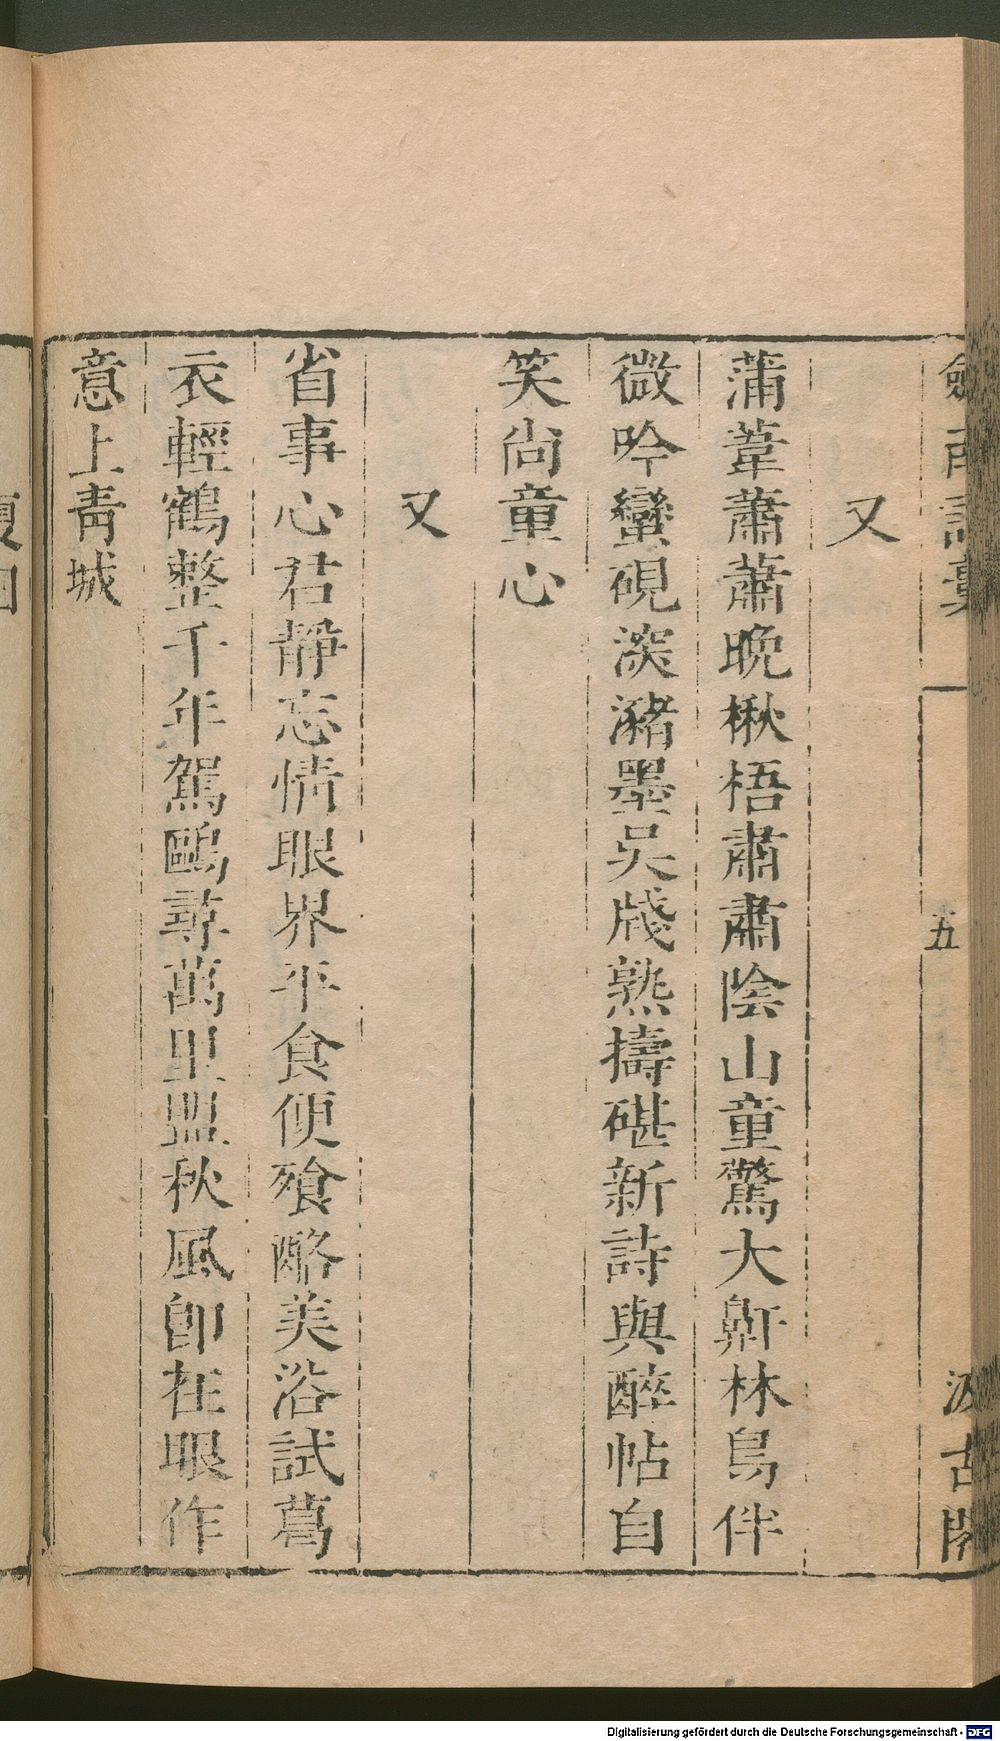 劍南詩藁
五
汲古閣
又
蒲葦蕭蕭晩楸梧肅肅陰山童驚大鼾林鳥伴
微吟蠻硯深瀦墨吳牋熟擣碪新詩與醉帖自
笑尚童心
又
省事心君靜忘情眼界平食便飱酪美浴試葛
衣輕鶴整千年駕鷗尋萬里盟秋風卽在眼作
意上青城
Digitalisierung gefördert durch die Deutsche Forschungsgemeinschaft - DFG